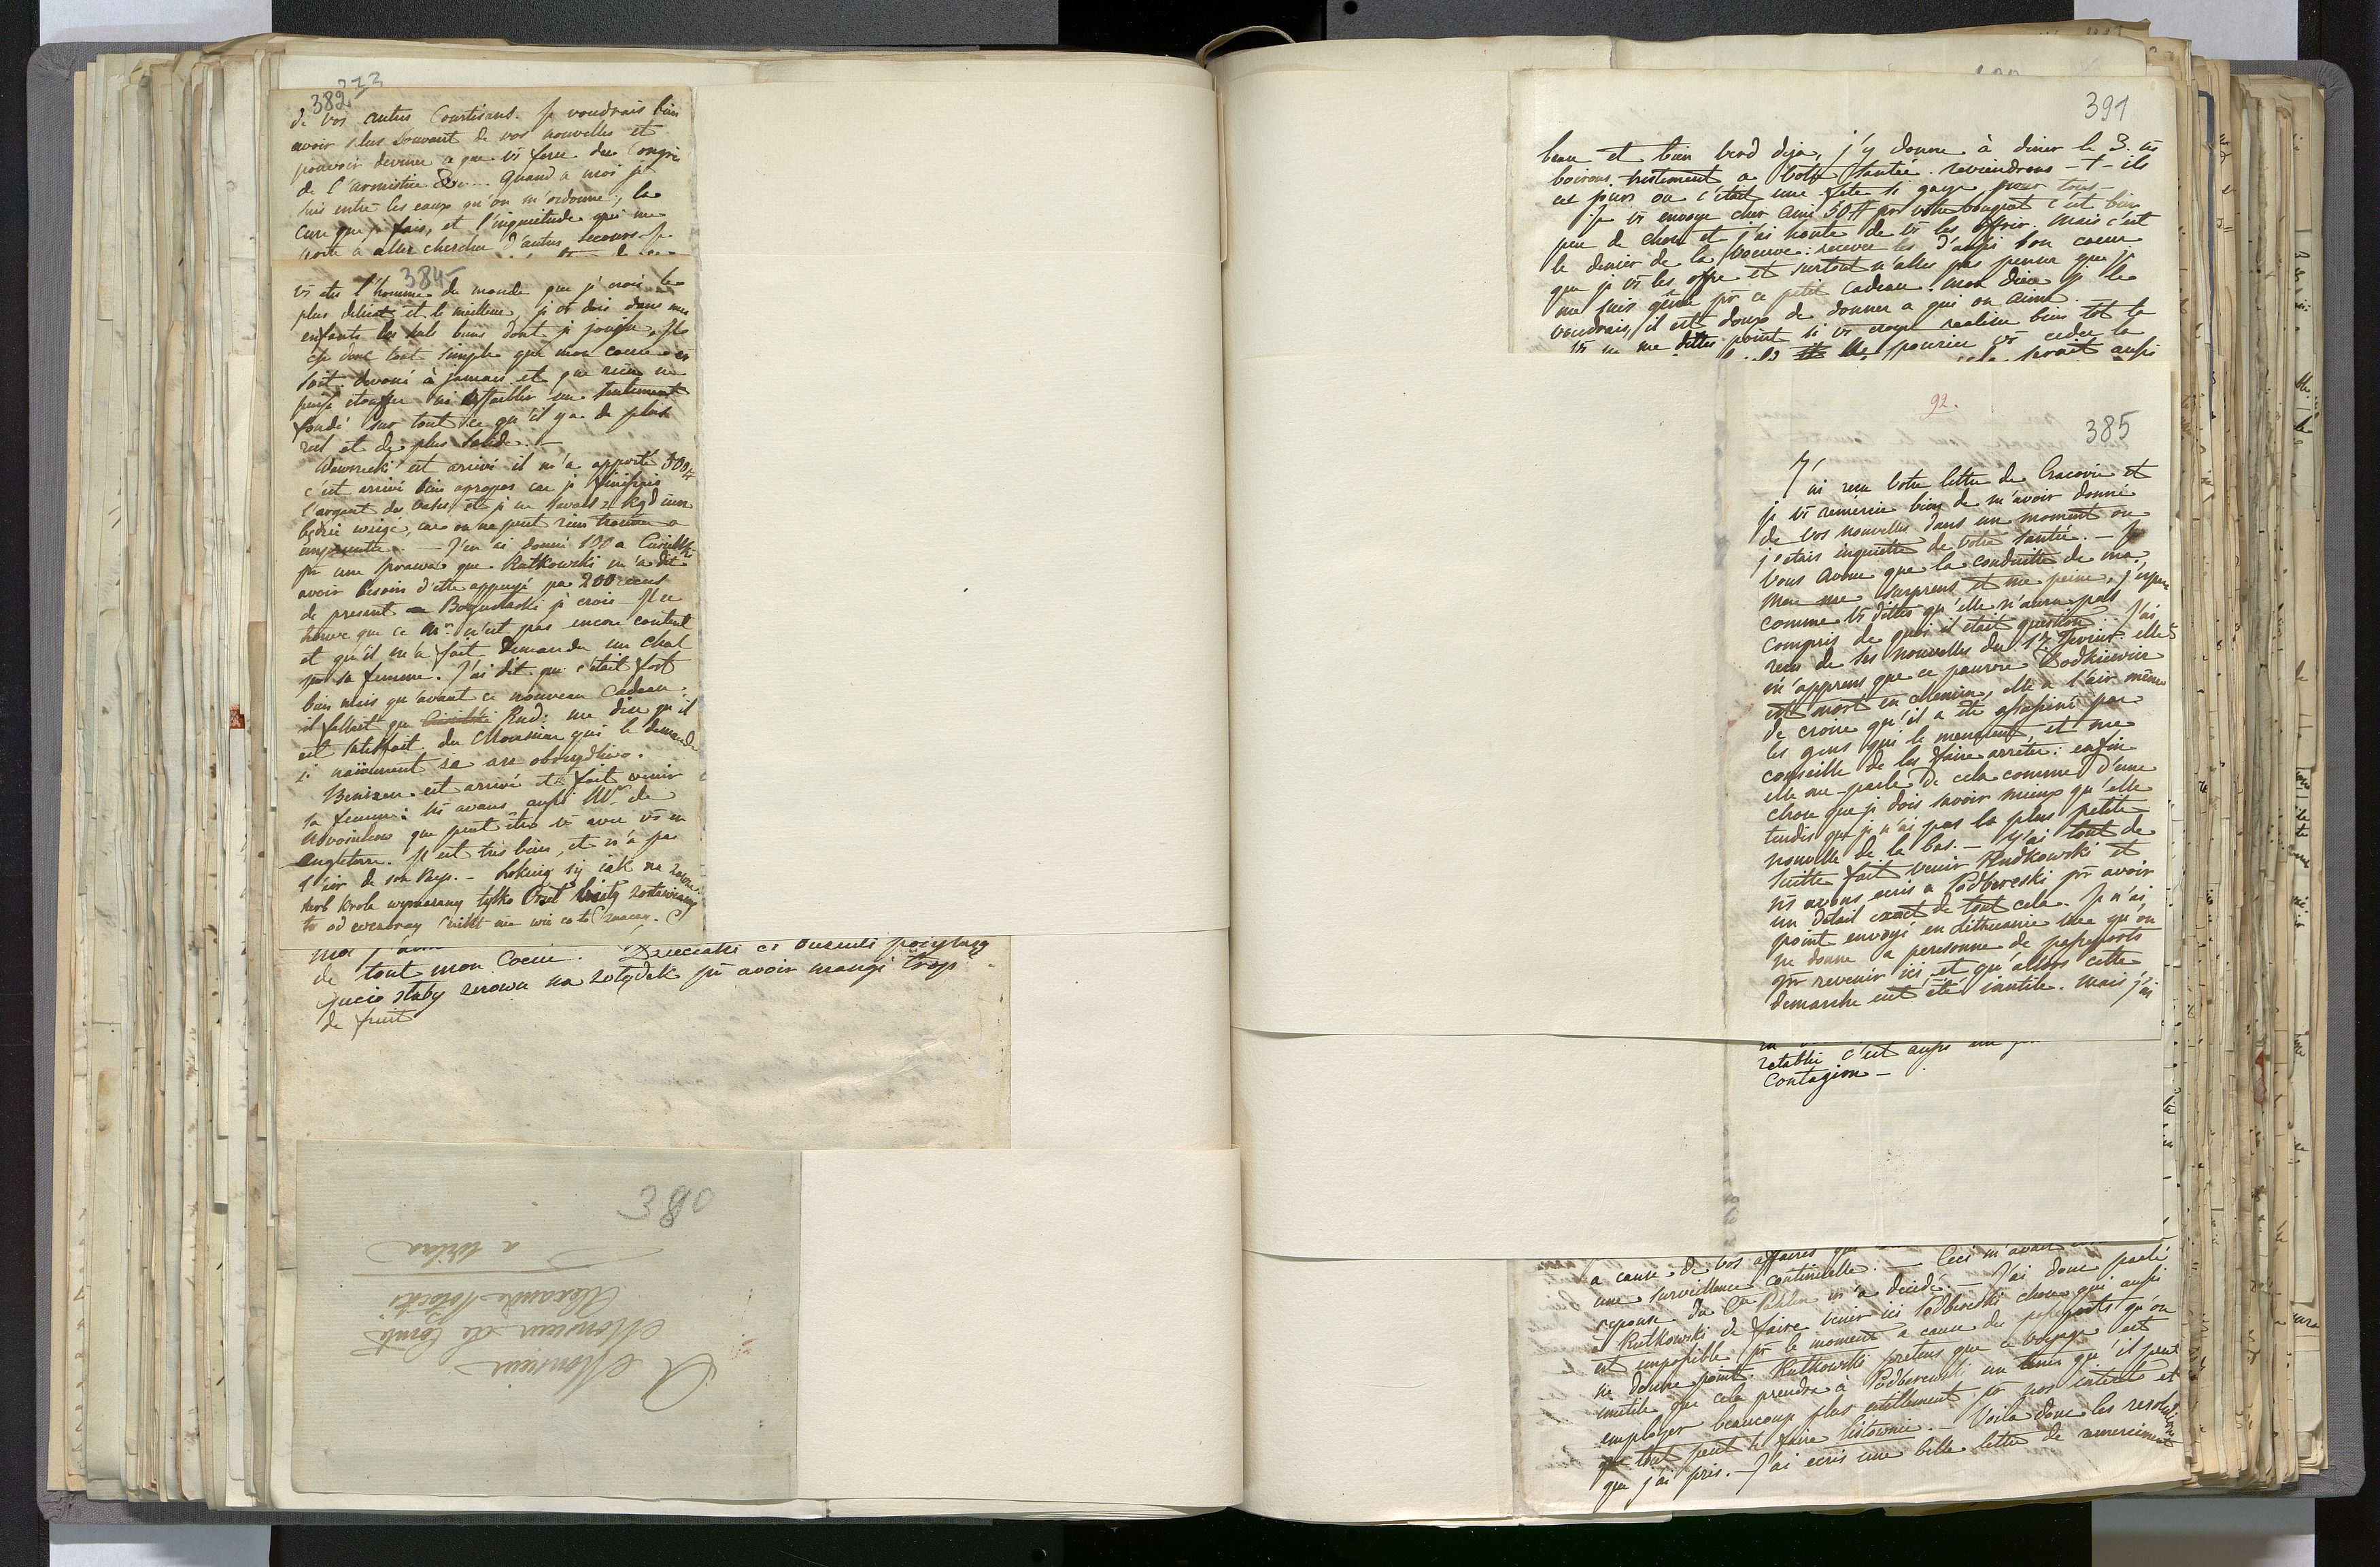 382
de vos autres Courtisans. Je voudrais bien
avoir plus souvent de vos nouvelles et
pouvoir deviner ce que vs ferez du Congrès
de l'armistice &c... Quand a moi je
suis entre les eaux qu'on m'ordonne, la
cure que je fais, et l'inquietude qui me
porte a aller chercher d'autres secours. Je
384
vs etes l'homme du monde que je crois le
plus delicat et le meilleur, je vs dois dans mes
enfants les seuls biens dont je jouisse. Il
est donc tout simple que mon coeur vs
soit devoué à jamais et que rien ne
puisse etouffer ni affaiblir un sentiment
fondé sur tout ce qu'il y a de plus
reel et de plus solide. —
Wawrzecki est arrivé il m'a apporté 300#
c'est arrivé bien apropos car je finissais
l'argent des
wziąć, car on ne peut rien trouver a
emprunter. — J'en ai donné 100 a
pr une sprawa que Rutkowski m'a dit
avoir besoin d'etre appuyé par 200
de present a je crois. Il se
trouve que ce Mr. n'est pas encore content
et qu'il m'a fait demander un chal
pr sa femme. J'ai dit que c'était fort
bien mais qu'avant ce nouveau cadeau
il fallait que Rud: me dise qu'il
est satisfait du Monsieur qui le demande
si naïvement
est arrivé et fait venir
sa femme: ns avons aussi Mr. de
que peut être vs avez vu en
Angleterre. Il est très bien, et n'a pas
l'air de son Pays. —
herb Krola wymazany tylko
nie wie co to znaczy.
de tout mon Coeur.
Gucio słaby znowu na żołądek pr avoir mangé trop
de fruit
380
A Monsieur
Monsieur le Comte
Alexandre Potocki
a Wilna
391
beau et bien verd deja, j'y donne à diner le 3. ns
boirons tristement a votre santée. reviendrons-t-ils
ces jours ou c'était une fete si gaye pour tous —
Je vs envoye cher Ami 50# pr votre bouquet c'est bien
peu de chose et j'ai honte de vs les offrir. Mais c'est
le denier de la veuve: recevez les d'aussi bon coeur
que je vs les offre et surtout n'allez pas penser que je
me suis gêné pr ce petit cadeau. Mon Dieu je le
voudrais, il est doux de donner a qui on aime. —
vs ne me dittes point si vs croyez realiser bien tot le
92.
385
J'ai reçu votre lettre de Cracovie et
je vs remercie bien de m'avoir donné
de vos nouvelles dans un moment ou
j'etais inquiette de votre santée. — Je
vous avoue que la conduitte de ma
Mere me surprens et me peine, j'espere
comme vs dittes qu'elle n'aura pas
compris de quoi il etait question. J'ai
recu de ses nouvelles du 17 Fevrier. elle
m'apprens que ce pauvre Bodkiewicz
est mort en chemin, elle a l'air même
de croire qu'il a été assassiné par
les gens qui le menaient, et me
conseille de les faire arreter: enfin
elle me parle de cela comme d'une
chose que je dois savoir mieux qu'elle
tandis que je n'ai pas la plus petite
nouvelle de la bas. — J'ai tout de
suitte fait venir Rudkowski et
ns avons ecris a Podbereski pr avoir
un détail exact de tout cela. Je n'ai
point envoyé en Lithuanie vue qu'on
ne donne a personne de passeports
pr revenir ici, et qu'allors cette
demarche eut été inutile. Mais j'ai
retablie c'est aussi un
Contagion —
a cause de vos affaires
une surveillance continuelle. — Ceci m'avait
reponse du Cte Pahlen m'a decidé. — J'ai donc parlé
a Rutkowski de faire venir ici Podbereski chose qui aussi
est impossible pr le moment a cause des passeports qu'on
ne donne point. Rutkowski pretens que ce voyage est
inutile que cela prendra à Podbereski un tems qu'il peut
employer beaucoup plus utillement pr nos interets et
que tout peut se faire listownie. — Voila donc les resolutions
que j'ai pris. — J'ai ecris une belle lettre de remerciment